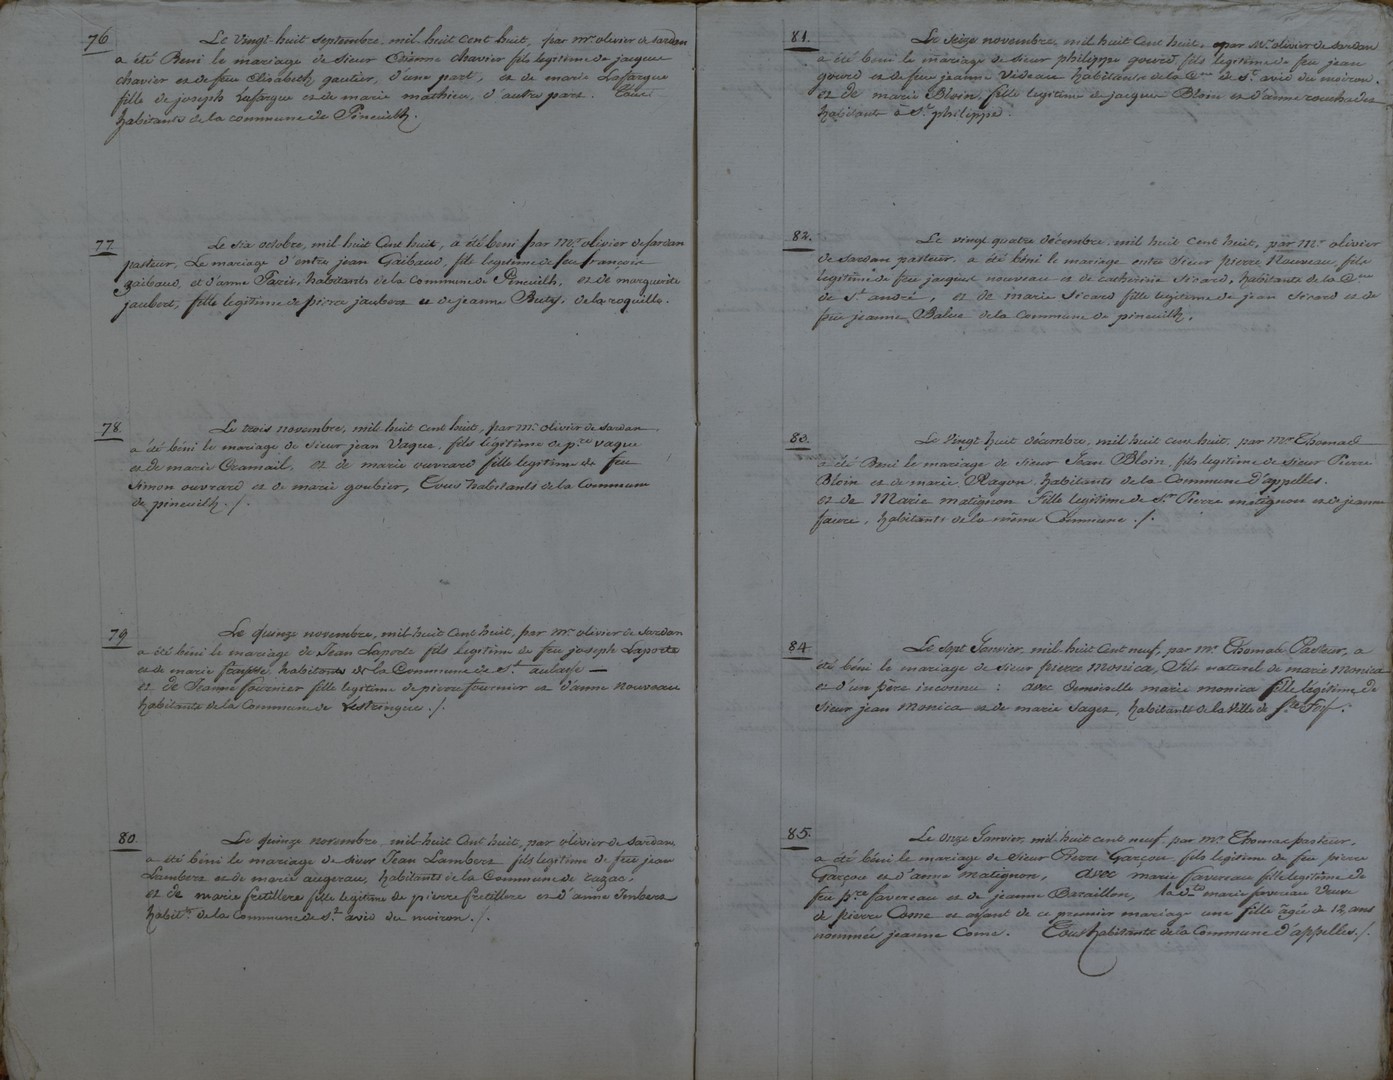 76
Le vingt huit septembre, mil huit cent huit, par mr. olivier de sardan
a été Beni le mariage de sieur Etienne chavier fils legitime de jacque
chavier et de feu Elisabeth gautier, d'une part, et de marie Lafargue
fille de joseph Lafargue et de marie mathieu, d'autre part. Tous
habitants de la commune de Pineuilh.
77
Le six octobre, mil huit Cent huit, a été beni par Mr. olivier de sardan
pasteur, Le mariage d'entre jean Gaibaud, fils legitime de feu françois
gaibaud, et d'anne Paris, habitants de la Commune de Pineuilh, et de marguerite
jaubert, fille legitime de pierre jaubert et de jeanne Buty, de la roquille.
78.
Le trois novembre, mil huit cent huit, par mr. olivier de sardan
a été béni le mariage de sieur jean Vaque, fils légitime de p.re vaque
et de marie Cramail, et de marie ouvrard fille legitime de feu
Simon ouvrard et de marie goubier, Tous habitants de la Commune
de pineuilh ./.
79
Le Quinze novembre, mil huit Cent huit, par mr. olivier de sardan
a été béni le mariage de Jean Laporte fils legitime de feu joseph Laporte
et de marie habitans de la Commune de St. aulaye —
et de Jeanne fournier fille legitime de pierre fournier et d'anne nouveau
habitants de la Commune de Lestringue ./.
80
Le Quinze novembre, mil huit Cent huit, par olivier de sardan,
a été béni le mariage de sieur Jean Lambert fils legitime de feu jean
Lambert et de marie augerau, habitants de la Commune de razac.
et de marie fretillere fille legitime de pierre fretillere et d'anne Imbert
habit.ts de la Commune de St. avid du moiron ./.
81.
Le seize novembre, mil huit Cent huit, par Mr. olivier de sardan
a été beni le mariage de sieur philippe gourd, fils légitime de feu jean
gourd et de feu jeanne Videau habitants de la C.ne de St. avid du moiron.
et de marie Bloin, fille legitime de jacque Bloin et d'anne
habitants à St. philippe.
82.
Le vingt quatre décembre, mil huit cent huit, par mr. olivier
de sardan pasteur, a été béni le mariage entre sieur pierre Nauveau, fils
legitime de feu jacques nouveau et de catherine Sicard, habitants de la C.ne
de St. andré, et de marie Sicard fille legitime de jean Sicard et de
feue jeanne Balue de la commune de pineuilh.
83.
Le vingt huit décembre, mil huit cent huit, par Mr. Thomas
a été Beni le mariage de sieur Jean Bloin, fils legitime de sieur Pierre
Bloin et de marie Ragon habitants de la Commune d'appelles.
et de Marie matignon fille legitime de Sr. Pierre matignon et de jeanne
faure, habitants de la même Commune ./.
84
Le sept Janvier, mil huit cent neuf, par mr. Thomas Pasteur, a
été béni le mariage de sieur pierre Monica, fils naturel de marie monica
et d'un père inconnu : avec demoiselle marie monica fille legitime de
sieur jean Monica et de marie Saget, habitants de la Ville de Ste. Foy.
85.
Le onze Janvier, mil huit cent neuf par mr. Thomas pasteur,
a été béni le mariage de Sieur Pierre Garçou fils legitime de feu pierre
Garçou et d'anne Matignon, avec marie favereau fille legitime de
feu p.re favereau et de jeanne Baraillon, la d.te marie favereau Veuve
de pierre Come et ayant de ce premier mariage une fille âgée de 12 ans
nommée jeanne Come. Tous habitants de la Commune d'appelles ./.